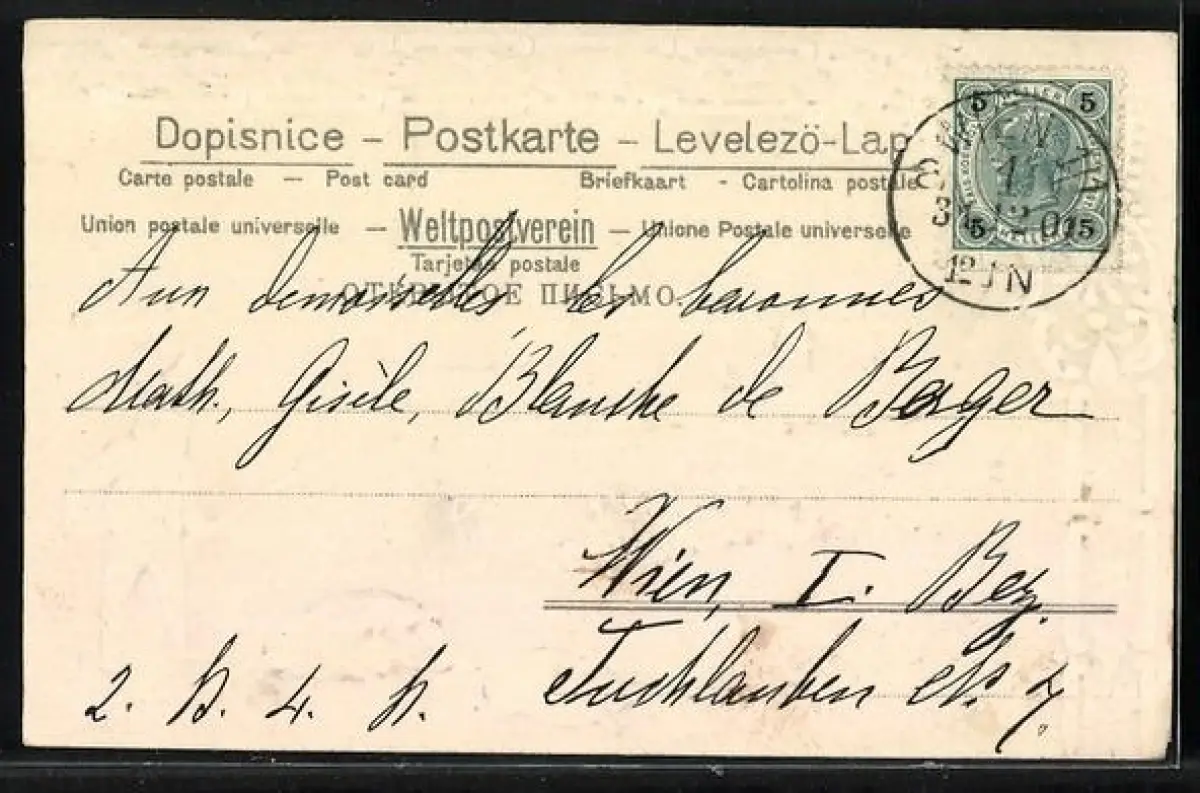 Dopisnice – Postkarte – Levelezö-Lap
Carte postale — Post card Briefkaart - Cartolina postale
Union postale universelle — Weltpostverein — Unione Postale universelle
Tarjetas postale
ОТКРЫТОЕ ПИСЬМО.
5 HELLER 5
5 HELLER 5
WIEN
Aux demoiselles les baronnes
Math., Gisèle, Blanche de Bager
Wien, I. Bez.
Tuchlauben No. 7
2. B. 4. H.